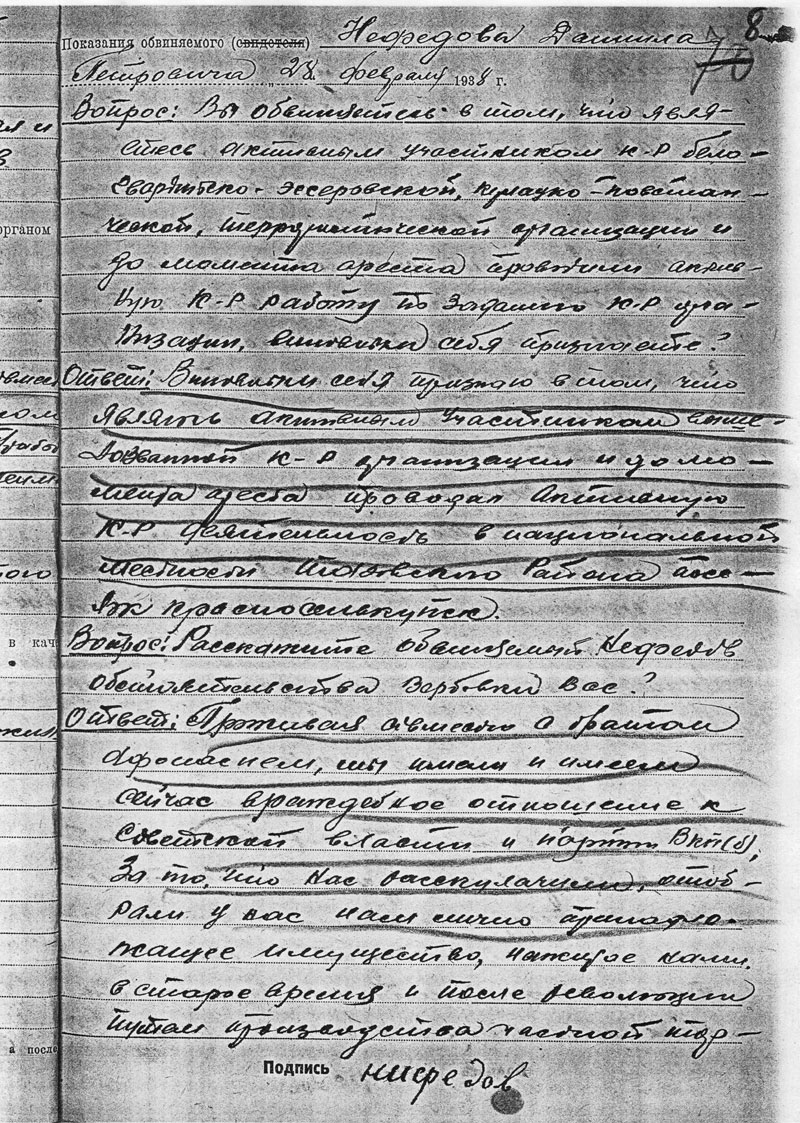 8
70
Показания обвиняемого (свидетеля) Нефедова Данила
Петровича „28 февраля 1938 г.
Вопрос: Вы обвиняетесь в том, что явля-
етесь активным участником к-р бело-
гвардейско-эссеровской, кулацко-повстан-
ческой, террористической организации и
до момента ареста проводили актив-
ную к-р работу по заданию к-р орга-
низации, виновным себя признаете?
Ответ: Виновным себя признаю в том, что
являясь активным участником выше-
названной к-р организации и до мо-
мента ареста проводил активную
к-р деятельность в национальной
местности Тазовского района
красноселькупск.
Вопрос: Расскажите обвиняемый Нефедов
обстоятельства вербовки вас?
Ответ: Проживая совместно с братом
Афонасием, мы имели и имеем
сейчас враждебное отношение к
советской власти и партии ВКП(б),
за то, что нас раскулачили, отоб-
рали у нас нам лично принадле-
жащее имущество, нажитое нами
в старое время и после революции
путем производства частной тор-
Подпись Нифедов
ая и
в
органом
ого
в кач
а после